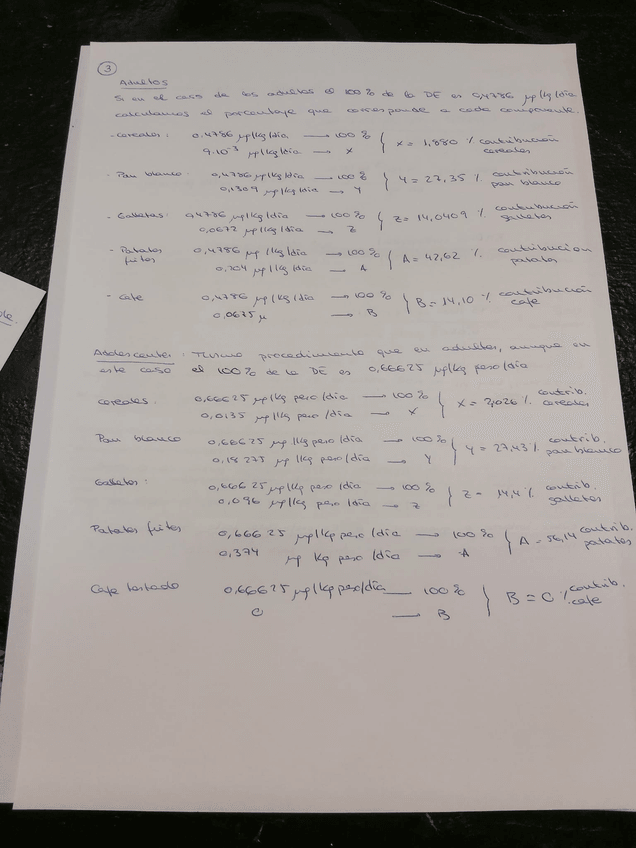 3
Adultos
Si en el caso de los adultos el 100% de la DE es 0,4786 µg/kg/día
calculamos el porcentaje que corresponde a cada componente.
- Cereales: 0,4786 µg/kg/día → 100% } X = 1,880 % contribución
9·10⁻³ µg/kg/día → X cereales
- Pan blanco: 0,4786 µg/kg/día → 100% } Y = 27,35 % contribución
0,1309 µg/kg/día → Y pan blanco
- Galletas: 0,4786 µg/kg/día → 100% } Z = 14,0409 % contribución
0,0672 µg/kg/día → Z galletas
- Patatas 0,4786 µg/kg/día → 100% } A = 42,62 % contribución
fritas 0,204 µg/kg/día → A patatas
- Café 0,4786 µg/kg/día → 100% } B = 14,10 % contribución
0,0675 µ → B café
Adolescentes: Mismo procedimiento que en adultos, aunque en
este caso el 100% de la DE es 0,66625 µg/kg peso/día
Cereales: 0,66625 µg/kg peso/día → 100% } X = 2,026 % contrib.
0,0135 µg/kg peso/día → X cereales
Pan blanco 0,66625 µg/kg peso/día → 100% } Y = 27,43 % contrib.
0,18275 µg/kg peso/día → Y pan blanco
Galletas: 0,66625 µg/kg peso/día → 100% } Z = 14,4 % contrib.
0,096 µg/kg peso/día → Z galletas
Patatas fritas 0,66625 µg/kg peso/día → 100% } A = 56,14 contrib.
0,374 µg kg peso/día → A patatas
Café tostado 0,66625 µg/kg peso/día — 100% } B = 0 % contrib.
0 — B café